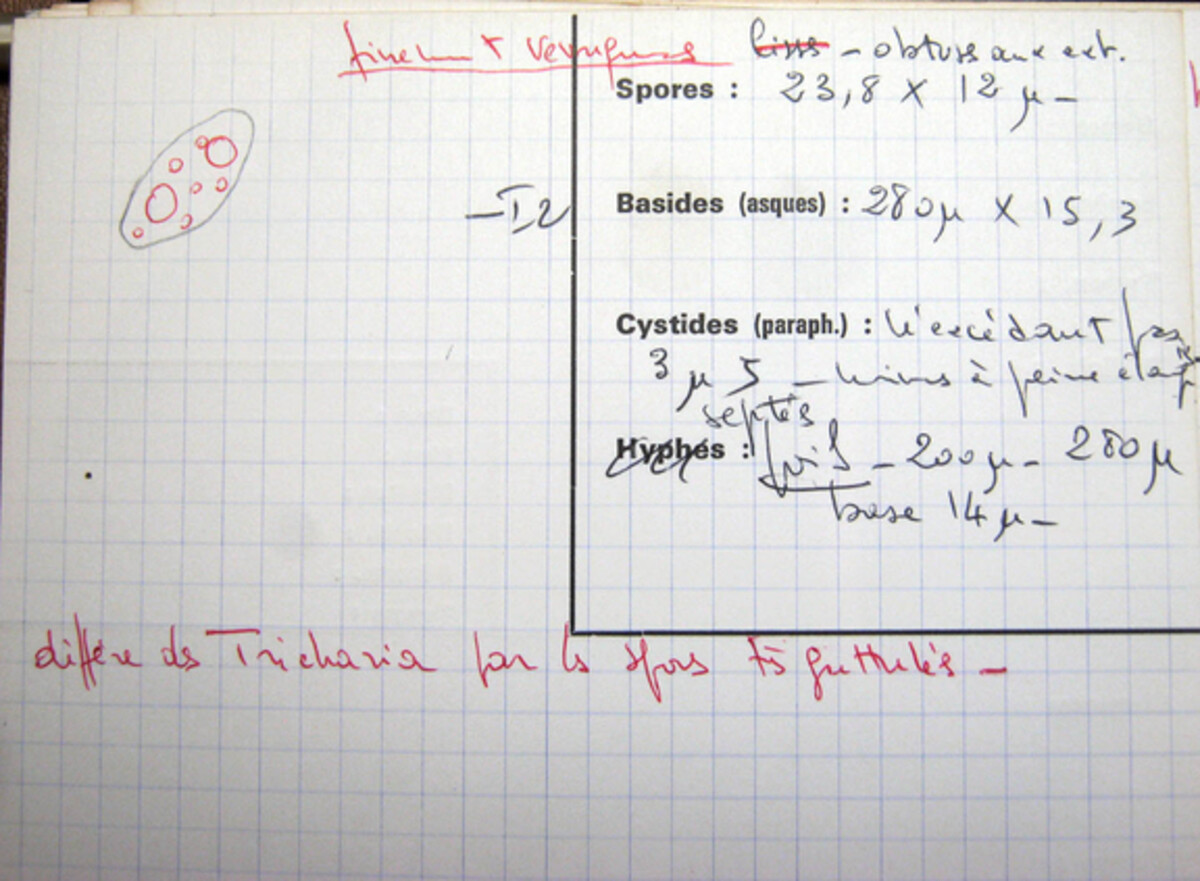 finement verruqueuses lisses - obtuses aux ext.
Spores : 23,8 X 12 µ -
- I2 Basides (asques) : 280µ X 15,3
Cystides (paraph.) : n'excédant pas
3 µ 5 - moins à peine élarg
septés
Hyphes : poils - 200µ - 280µ
base 14 µ -
diffère des Tricharia par les spores très guttulés -